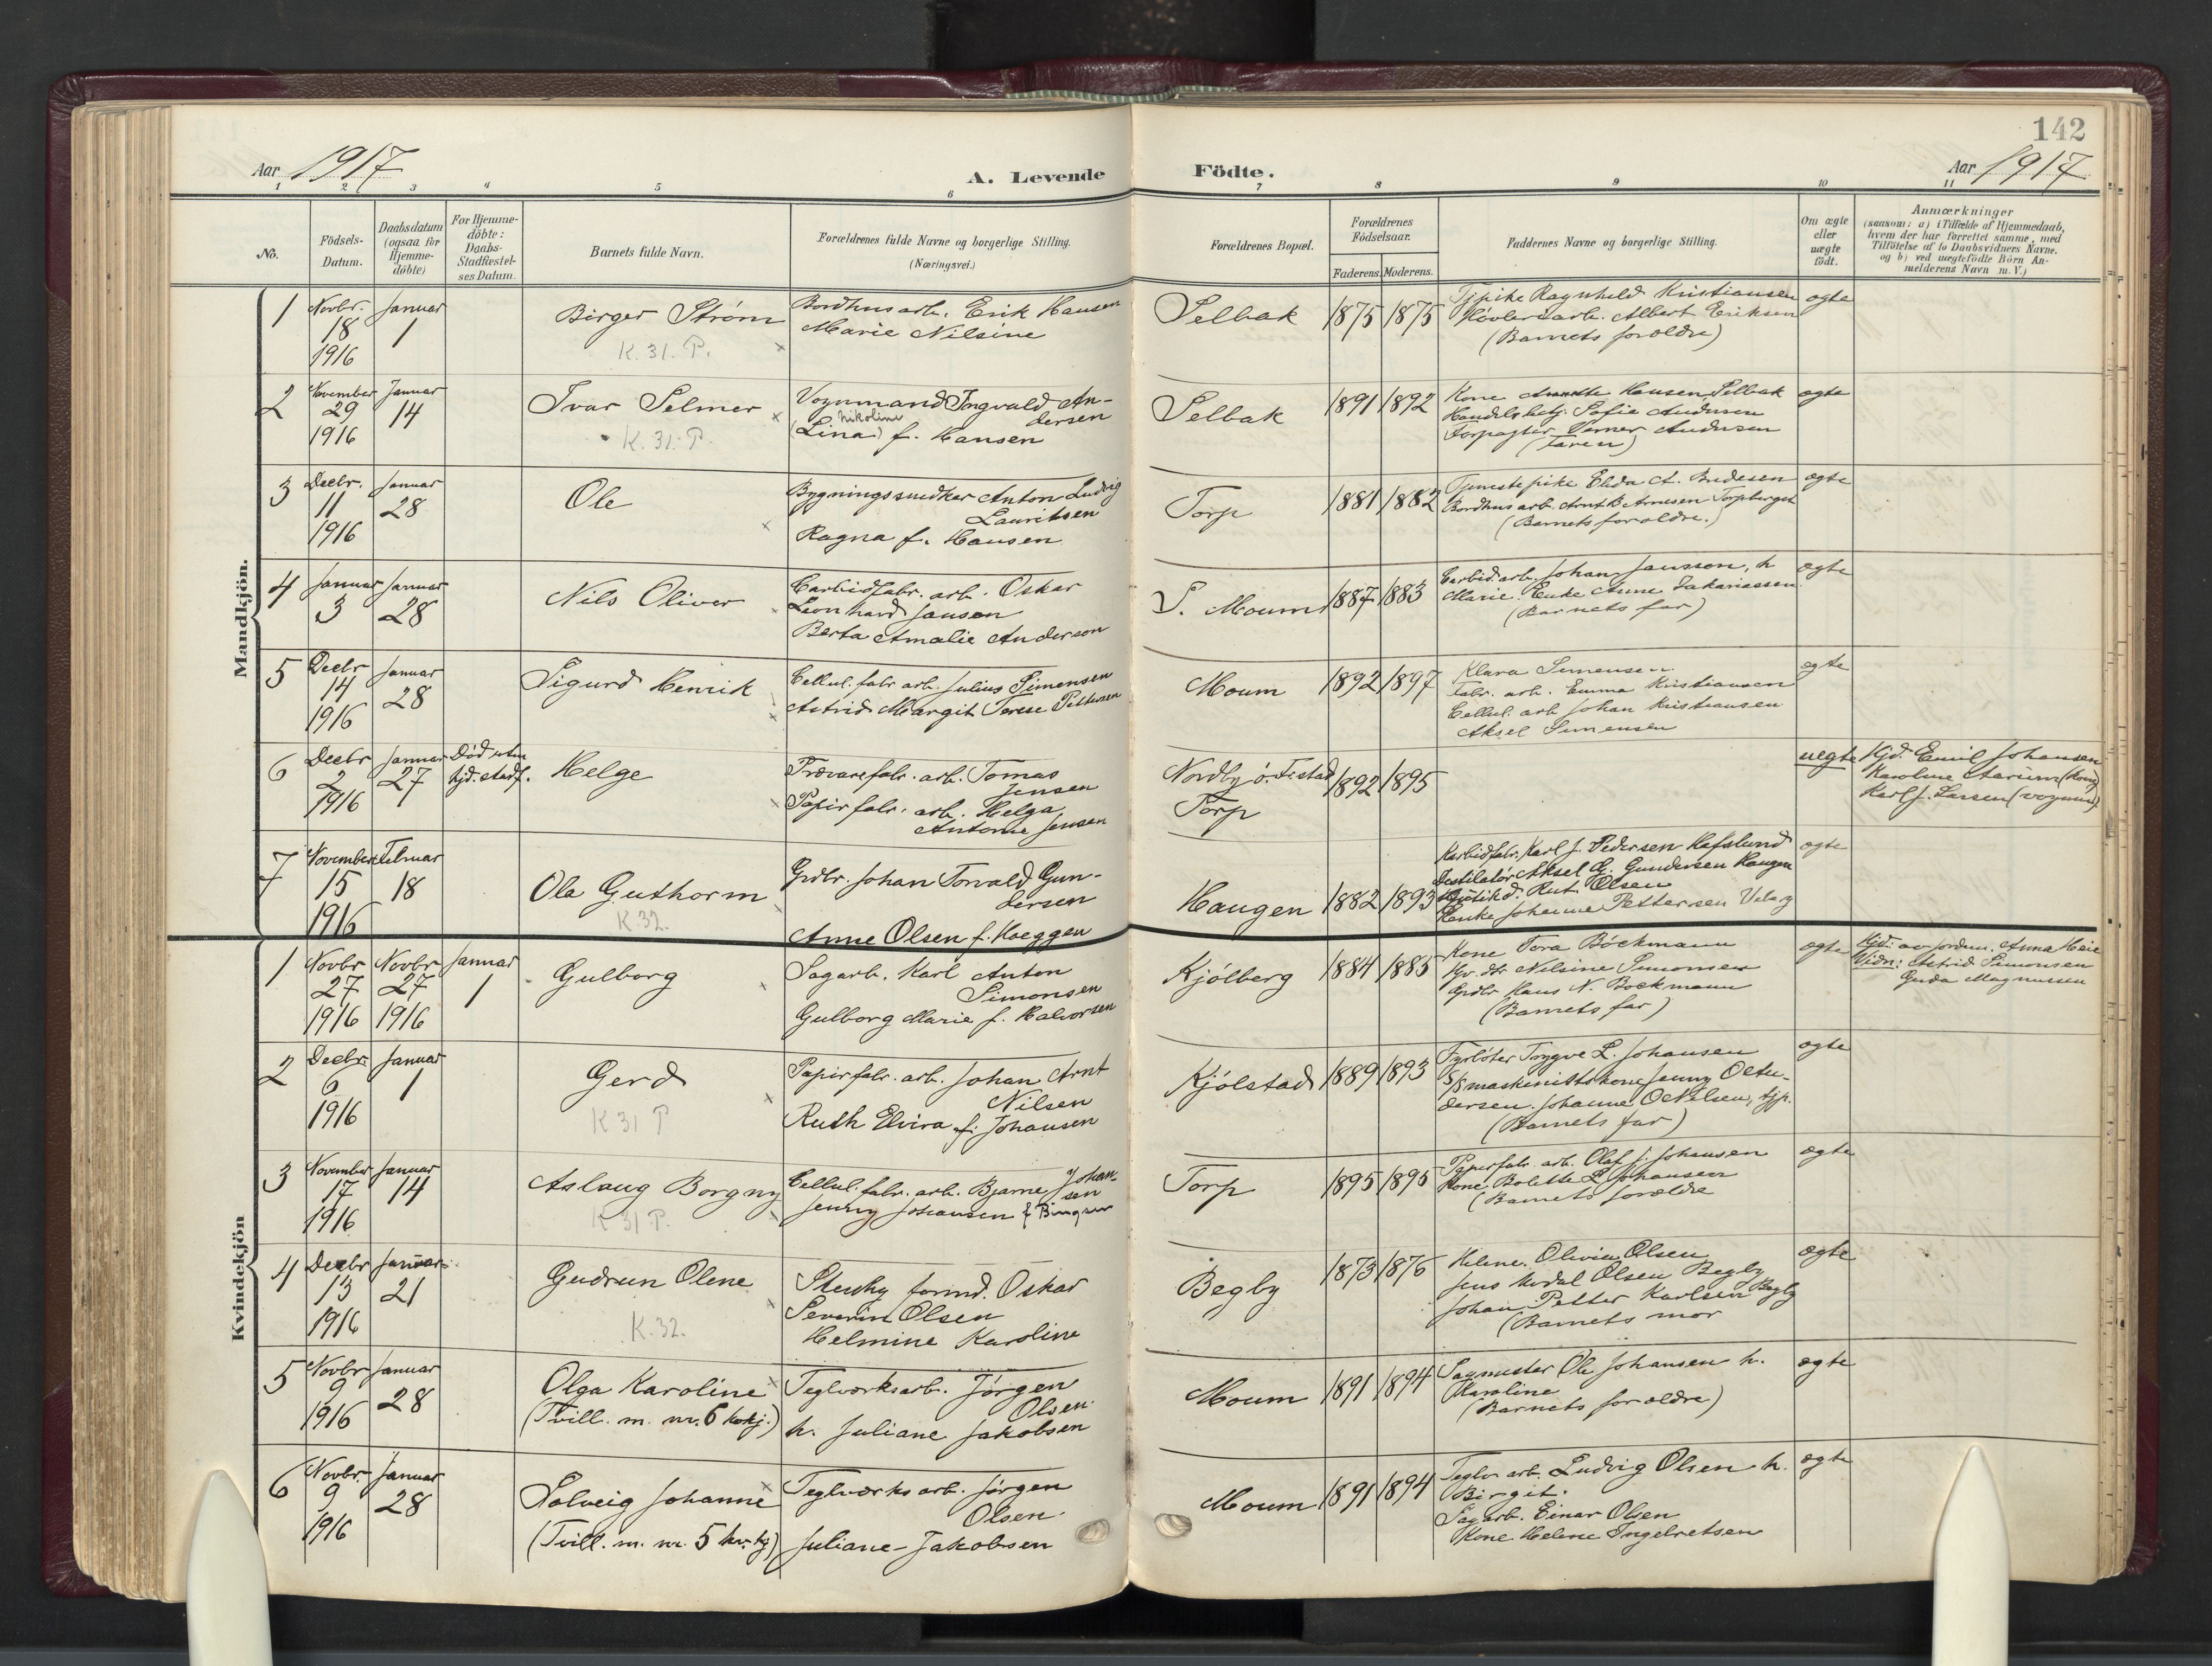 142
Aar 1917
A. Levende Födte.
Aar 1917
1 2 3 4 5 6 7 8 9 10 11
No.
Födsels-
Datum.
Daabsdatum
(ogsaa for
Hjemme-
döbte)
For Hjemme-
döbte:
Daabs-
Stadfæstel-
ses Datum.
Barnets fulde Navn.
Forældrenes fulde Navne og borgerlige Stilling.
(Næringsvei.)
Forældrenes Bopæl.
Forældrenes
Födselsaar.
Faderens. Moderens.
Faddernes Navne og borgerlige Stilling.
Om ægte
eller
uægte
födt.
Anmærkninger
(saasom: a) i Tilfælde af Hjemmedaab,
hvem der har forrettet samme, med
Tilföielse af to Daabsvidners Navne.
og b) ved uægtefödte Börn An-
melderens Navn m. V.)
Mandkjön.
1
Novbr.
18
1916
Januar
1
Birger Strøm
K. 31. P.
Bordhusarb. Erik Hansen
Marie Nilsine
Selbak
1875
1875
Tjpike Ragnhild Kristiansen
Høvleriarb. Albert Eriksen
(Barnets forældre)
ægte
2
November
29
1916
Januar
14
Ivar Selmer
K. 31. P.
Vognmand Ingvald An-
dersen
Nikoline
(Lina) f. Hansen
Selbak
1891
1892
Kone Annette Hansen Selbak
Handelsbetj. Sofie Andersen
Forpagter Verner Andersen
(Faren)
ægte
3
Decbr.
11
1916
Januar
28
Ole
Bygningssnedker Anton Ludvig
Lauritsen
Ragna f. Hansen
Torp
1881
1882
Tjenestepike Elida A. Bredesen
Bordhusarb. Arnt B. Arnesen Torpberget
(Barnets forældre.)
ægte
4
Januar
3
Januar
28
Nils Oliver
Carbidfabr. arb. Oskar
Leonhard Jansen
Berta Amalie Anderson
S. Moum
1887
1883
Carbid.arb. Johan Jansson, h
Marie. Enke Anne Zakariassen
(Barnets far)
ægte
5
Decbr
14
1916
Januar
28
Sigurd Henrik
Cellul. fabr. arb. Julius Simensen
Astrid Margit Terese Pettersen
Moum
1892
1897
Klara Simensen
Fabr. arb. Emma Kristiansen
Cellul. arb Johan Kristiansen
Aksel Simensen
ægte
6
Decbr
2
1916
Januar
27
Død uten
hjd. stadf.
Helge
Trævarefabr. arb. Tomas
Jensen
Papirfabr. arb. Helga
Antonie Jensen
Nordby ö. Tistad
Torp
1892
1895
uegte
Hjd. Emil Johansen
Karoline Aarum (Kone)
Karl J. Larsen (vognm)
7
November
15
1916
Februar
18
Ola Guthorm
K. 32.
Grdbr. Johan Torvald Gun-
dersen
Anne Olsen f. Hoeggen
Haugen
1882
1893
Karbidfabr. Karl J. Pedersen Hafslund
Destilatør Aksel G. Gundersen Haugen
Butikd. Rut Olsen
Enke Johanne Pettersen Visterg
ægte
Kvindekjön
1
Novbr
27
1916
Novbr
27
1916
Januar
1
Gulborg
Sagarb. Karl Anton
Simonsen
Gulborg Marie f. Halvorsen
Kjølberg
1884
1885
Kone Tora Böckmann
Gr. dtr Nilsine Simonsen
Grdbr Hans N. Bockmann
(Barnets far)
ægte
Hjd: av jordm. Anna Heie
Vidn: Astrid Simonsen
Guda Magnussen
2
Decbr.
6
1916
Januar
1
Gerd
K 31 P
Papirfabr. arb. Johan Arnt
Nilsen
Ruth Elvira f. Johansen
Kjølstad
1889
1893
Fyrbøter Trygve L. Johansen
S/S maskinistkone Jenny
dersen. Johanne O Nilsen, tjp.
(Barnets far)
ægte
3
November
17
1916
Januar
14
Aslaug Borgny
K 31 P.
Cellul. fabr. arb. Bjarne Johan-
sen
Jenny Johansen f
Torp
1895
1895
Papirfabr. arb. Olaf J. Johansen
Kone Bolette L Johansen
(Barnets forældre
ægte
4
Decbr
13
1916
Januar
21
Gudrun Olene
K. 32.
Stenhg formd. Oskar
Severin Olsen
Helmine Karoline
Begby
1873
1876
Helene Olivia Olsen
Jens Olsen Begby
Johan Petter Karlsen Begby
(Barnets mor
ægte
5
Novbr
9
1916
Januar
28
Olga Karoline
(Tvill. m. nr. 6 kvkj.)
Teglverksarb. Jørgen
Olsen
h. Juliane Jakobsen
Moum
1891
1894
Sagmester Ole Johansen h.
Karoline
(Barnets forældre)
ægte
6
Novbr.
9
1916
Januar
28
Solveig Johanne
(Tvill. m. nr. 5 kvkj)
Teglverksarb. Jørgen
Olsen
Juliane Jakobsen
Moum
1891
1894
Teglv arb. Ludvig Olsen h.
Birgit.
Sagarb. Einar Olsen
Kone Helene Ingebretsen
ægte